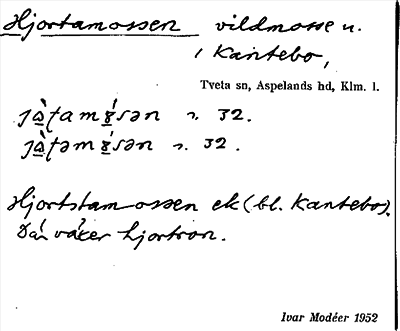 Hjortamossen vildmosse n.
i Kantebo,
Tveta sn, Aspelands hd, Klm. l.
jɑ̀ʈamɷ́sən n. 32.
jɑ̀ʈəmɷ́sən n. 32.
Hjortstamossen ek (bl. Kantebo).
Där växer hjortron.
Ivar Modéer 1952